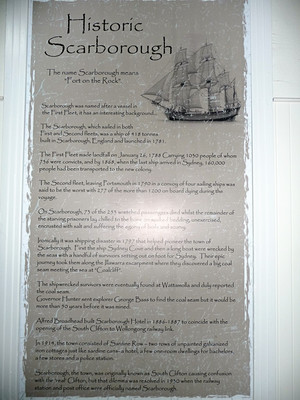 Historic
Scarborough
The name Scarborough means
"Fort on the Rock".
Scarborough was named after a vessel in
the First Fleet, it has an interesting background...
The Scarborough, which sailed in both
First and Second fleets, was a ship of 418 tonnes
built in Scarborough, England and launched in 1781.
The First Fleet made landfall on January 26, 1788 Carrying 1050 people of whom
736 were convicts, and by 1868, when the last ship arrived in Sydney, 160,000
people had been transported to the new colony.
The Second fleet, leaving Portsmouth in 1790 in a convoy of four sailing ships was
said to be the worst with 277 of the more than 1200 on board dying during the
voyage.
On Scarborough, 73 of the 259 wretched passengers died whilst the remainder
of the starving prisoners lay chilled to the bone on soaked bedding, unexercised,
encrusted with salt and suffering the agonies of
Ironically it was shipping disaster in 1797 that helped pioneer the town of
Scarborough. First the ship Sydney Cove and then a long boat were wrecked by
the seas with a handful of survivors setting out on foot for Sydney. Their epic
journey took them along the Illawarra escarpment where they discovered a big coal
seam meeting the sea at "Coalcliff".
The shipwrecked survivors were eventually found at Wattamolla and duly reported
the coal seam.
Governor Hunter sent explorer George Bass to find the coal seam but it would be
more than 50 years before it was mined.
Alfred Broadhead built Scarborough Hotel in 1886-1887 to coincide with the
opening of the South Clifton to Wollongong railway link.
In 1914, the town consisted of Sardine Row - two rows of unpainted galvanized
iron cottages just like sardine cans- a hotel, a few one-room dwellings for bachelors,
a few stores and a police station.
Scarborough, the town, was originally known as South Clifton causing confusion
with the 'real' Clifton, but that dilemma was resolved in
when the railway
station and post office were officially named Scarborough.